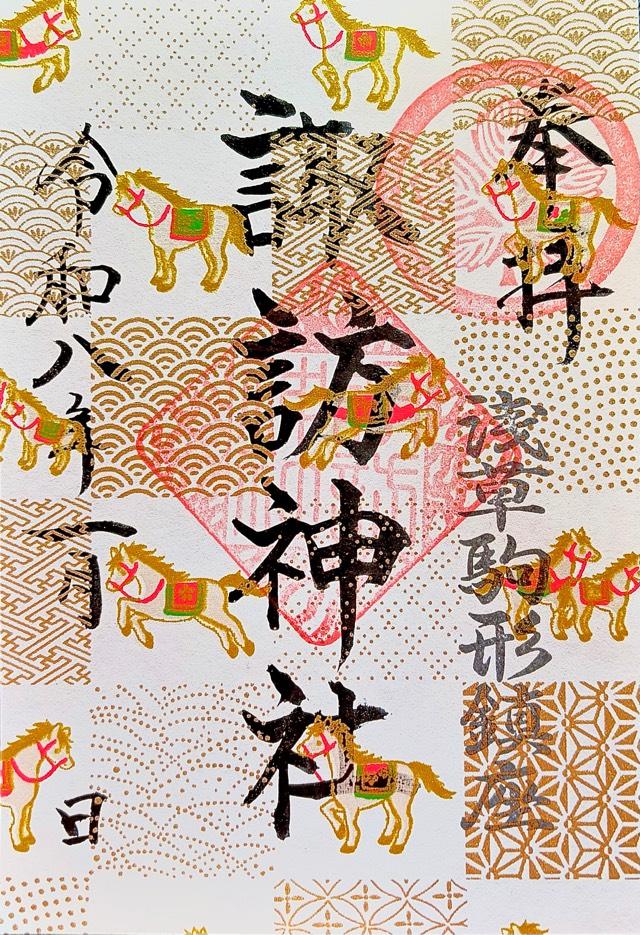 奉拝
浅草駒形鎮座
諏訪神社
令和八年一月 日